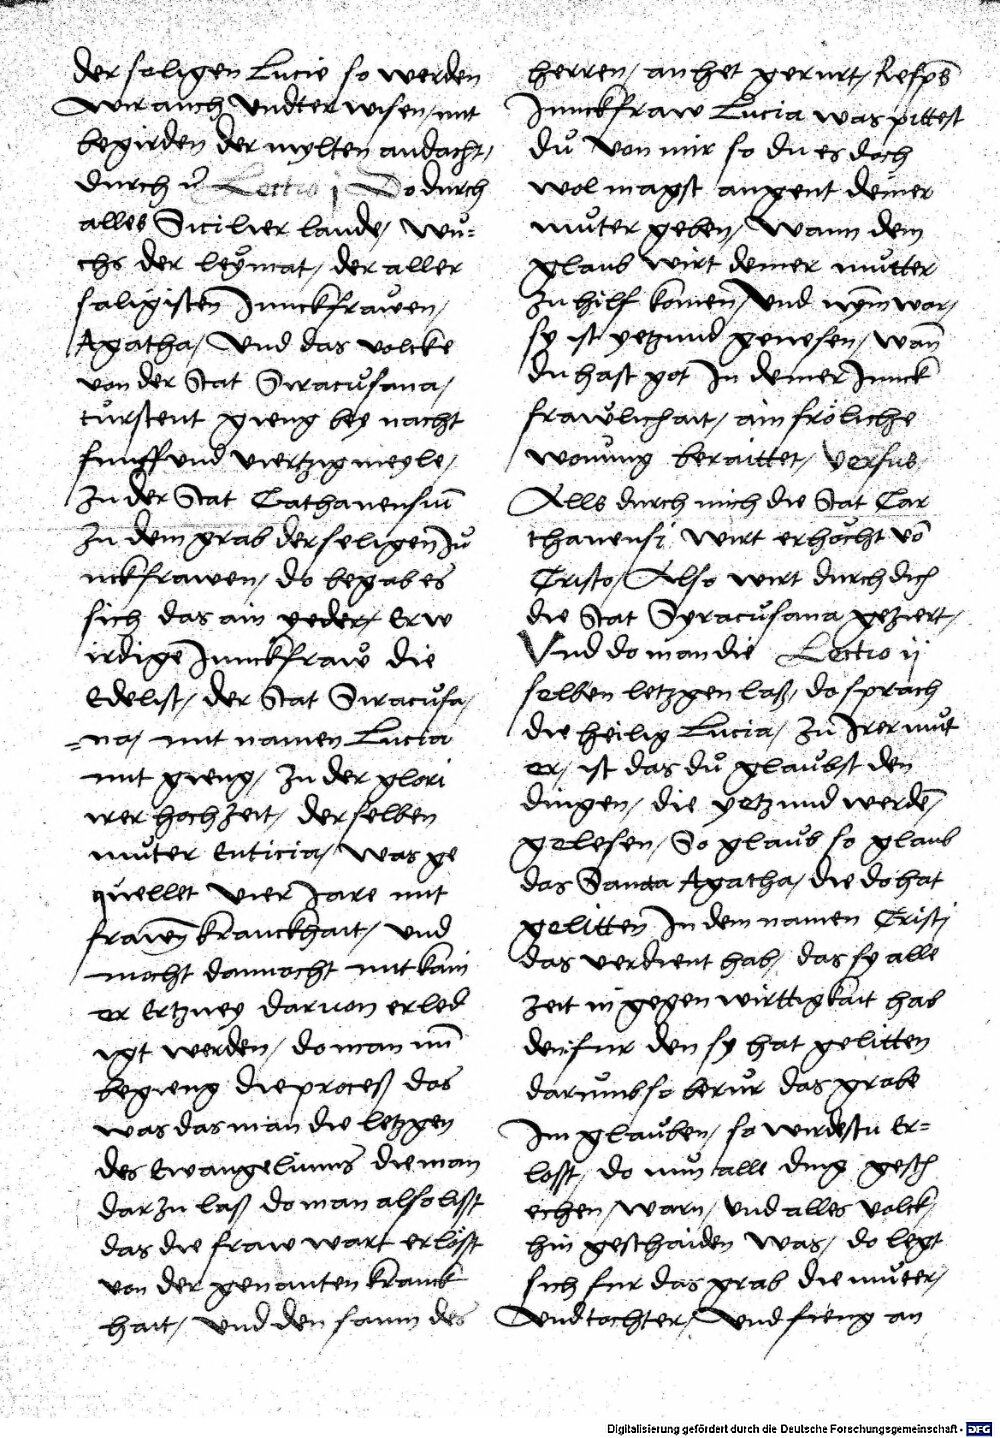 der saligen Lucie so werden
wir auch vndterwisen, mit
begirden der mylten andacht,
durch v̄ Lectio j Do durch
alles Sicilier lande, wu=
chs der leÿmat, der aller
saligisten Junckfrawen,
Agatha, Vnd das volcke
von der Stat Siracusana,
turstent gieng bey nacht
funff vnd viertzig meyle,
zu der Stat Cathanensiū
zu dem grab der seligen Ju
nckfrawen, do begab es
sich das ain yeder, Erw
irdige Junckfraw die
Edelist, der Stat Siracusa,
=na, mit namen Lucia
mit gieng, zu der glori
irer hochzeit, derselben
muter Enticia, Was ge
quellet vier Jare mit
frawen kranckhait, vnd
mocht dannacht mit kain
er Ertzney daruon erled
igt werden, do man nū
begieng die proceß das
was das man die letzgen
des Ewangeliums die man
darzu laß do man also lißt
das die fraw wart erlößt
von der genanten kranck
hait, vnd den saum des
herren, an het gerurt, Respō
Junckfraw Lucia was pittest
du von mir so du es doch
wol magst angent deiner
muter geben, Wann dem
glaub wirt deiner mutter
zu hilf komen, Vnd nym war,
sy ist yetzund genesen, wan̄
du hast got In deiner Junck
frawlichait, ain fröliche
wonung beraittet, Versus,
Alls durch mich die Stat Car
thanensi wirt erhöcht vō
Cristo, Also wirt durch dich
die Stat Syracusana geziert,
Vnd do man die Lectio ij
selben letzgen laß, do sprach
die heilig Lucia, zu Irer mut
er, ist das du glaubst den
dingen, die yetzund werdē,
gelesen, So glaub so glaub
das Sancta Agatha, die do hat
gelitten In dem namen Cristi
das verdient hab, das sy alle
zeit in gegenwirttigkait hab
den fur den sy hat gelitten
darumb so berur das grabe
Im glauben, so wirdestu Er=
losst, do nun alle ding gesch
echen, warn, vnd alles volck,
hin geschaiden was, do legt
sich fur das grab die muter,
vnd tochter, Vnd fieng an
Digitalisierung gefördert durch die Deutsche Forschungsgemeinschaft - DFG